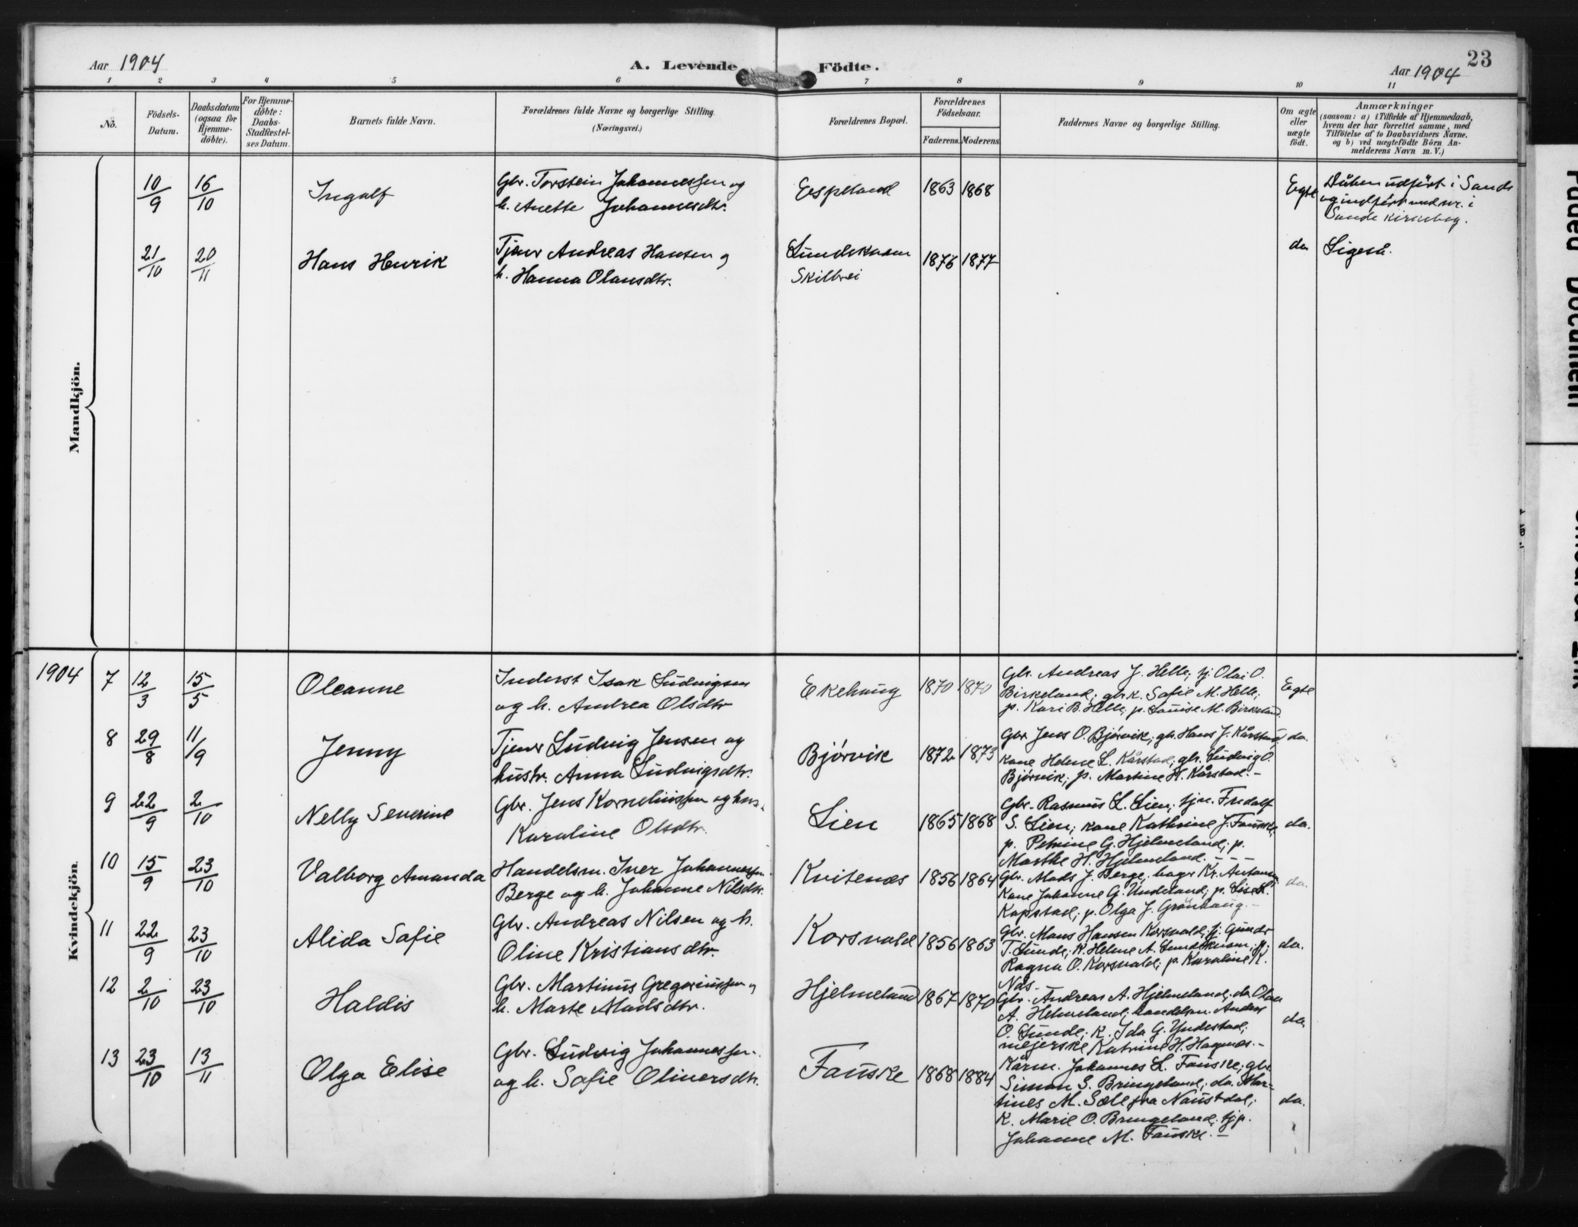 Aar 1904
A. Levende Fødte.
Aar 1904
23
1 2 3 4 5 6 7 8 9 10 11
No.
Fødsels-Datum.
Daabsdatum (ogsaa for Hjemmedøbte).
For Hjemmedøbte: Daabs-Stadfæstelses Datum.
Barnets fulde Navn.
Forældrenes fulde Navne og borgerlige Stilling. (Næringsvei.)
Forældrenes Bopæl.
Forældrenes Fødselsaar.
Faderens. Moderens.
Faddernes Navne og borgerlige Stilling.
Om ægte eller uægte født.
Anmærkninger
(saasom: a) i Tilfælde af Hjemmedaab, hvem der har forrettet samme, med Tilføielse af to Daabsvidners Navne, og b) ved uægtefødte Børn Anmelderens Navn m. V.)
Mandkjön.
10/9 16/10 Ingolf
Gbr. Torstein Johannessen og
h. Anette Johannesdtr.
Espeland 1863 1868
Egte
Dåben udført i Sande
og indført under nr. i
Sande kirkebog.
21/10 20/11 Hans Henrik
Tjener Andreas Hansen og
h. Hanna Olansdtr.
Skilbrei 1876 1877
do
Ligeså.
Kvindekjön.
1904 7 12/3 15/5 Oleanne
Inderst Isak Ludvigsen
og h. Andrea Olsdtr
Ekehaug 1870 1870
Gbr. Andreas J. Helle, tj. Olai O.
Birkeland; gbrk. Sofie M. Helle,
p. Kari B. Helle, p. Louise M. Birkeland
Egte
8 29/8 11/9 Jenny
Tjener Ludvig Jensen og
hustr. Anna Ludvigsdtr.
Bjørvik 1872 1873
Gbr Jens O. Bjørvik, gbr. Hans J. Kårstad
kone Helene L. Kårstad, gbr. Ludvig O.
Bjørvik; p. Martine H. Kårstad. -
do.
9 22/9 2/10 Nelly Severine
Gbr. Jens Korneliussen og hus.
Karoline Olsdtr.
Lien 1865 1868
Gbr. Rasmus L. Lien; tjn. Fredolf
S. Lien; kone Kathrine J. Fauske,
p. Petrine G. Hjelmeland; p.
Marthe H. Hjelmeland.
do.
10 15/9 23/10 Valborg Amanda
Handelsm. Iver Johannessen
Berge og h. Johanne Nilsdtr.
Kvitenæs 1856 1864
Gbr. Mads J. Berge, bager Kr. Antonsen
Kone Johanne G. Undeland, p.
Kopstad, p. Olga J. Grønhaug. -
do.
11 22/9 23/10 Alida Sofie
Gbr. Andreas Nilsen og h.
Oline Kristiansdtr.
Korsvold 1856 1863
Gbr. Mons Hansen Korsvold,
T. Sunde, K. Helene A.
Ragna O. Korsvold; p. Karoline K.
Nås. -
do.
12 2/10 23/10 Haldis
Gbr. Martinus Gregoriussen og
h. Marte Madsdtr.
Hjelmeland 1867 1870
Gbr. Andreas A. Hjelmeland, do Olai
A. Helmeland, handelsm. Anders
O. Sunde; K. Ida G. Yndestad,
meierske Katrine H. Hagenæs. -
do.
13 23/10 13/11 Olga Elise
Gbr. Ludvig Johannessen.
og h. Sofie Oliversdtr.
Fauske 1868 1884
Kårm. Johannes L. Fauske; gbr.
Simon S. Bringeland, do. Mar-
tines M. Sæle fra Naustdal;
K. Marie O. Bringeland, tjp.
Johanne M. Fauske. -
do.